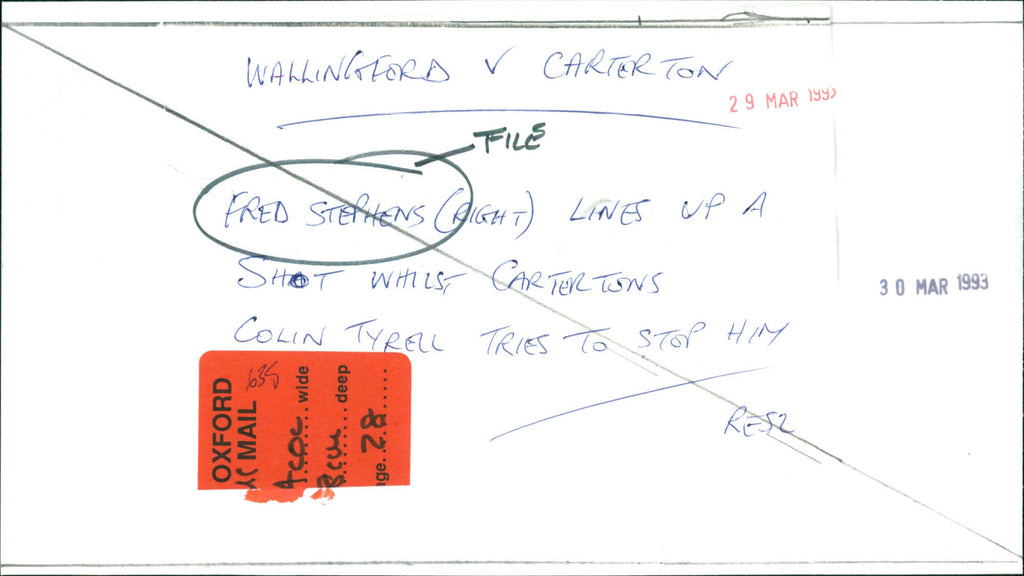 WALLINGFORD V CARTERTON
29 MAR 1993
FILE
FRED STEPHENS (RIGHT) LINES UP A
SHOT WHILST CARTERTONS
30 MAR 1993
COLIN TYRELL TRIES TO STOP HIM
RES2
OXFORD
MAIL
635
wide
deep
28